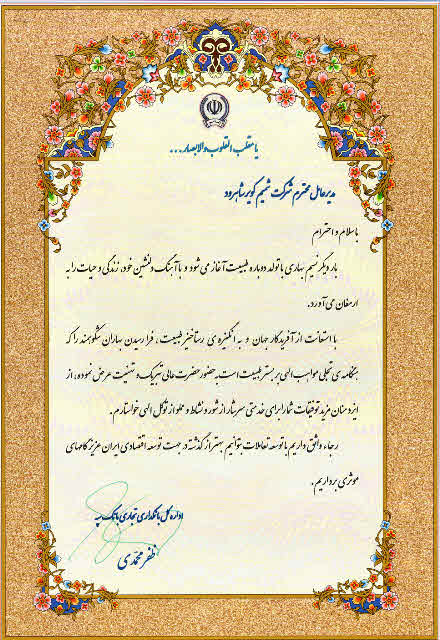 یا مقلب القلوب والابصار ...
مدیرعامل محترم شرکت شمیم کویر شاهرود
با سلام و احترام
بار دیگر نسیم بهاری با تولد دوباره طبیعت آغاز می شود و با آهنگ دلنشین خود، زندگی و حیات را به
ارمغان می آورد.
با استعانت از آفریدگار جهان و به انگیزه ی رستاخیز طبیعت، فرا رسیدن بهاران شکوهمند را که
هنگامه ی تجلی مواهب الهی بر بستر طبیعت است به حضور حضرت عالی تبریک و تهنیت عرض نموده، از
ایزد منان مزید توفیقات شما را برای خدمتی سرشار از شور و نشاط و مملو از توکل الهی خواستارم.
رجاء واثق داریم با توسعه تعاملات بتوانیم بهتر از گذشته در جهت توسعه اقتصادی ایران عزیز گامهای
موثری برداریم.
اداره کل بانکداری تجاری بانک سپه
ظفر محمدی